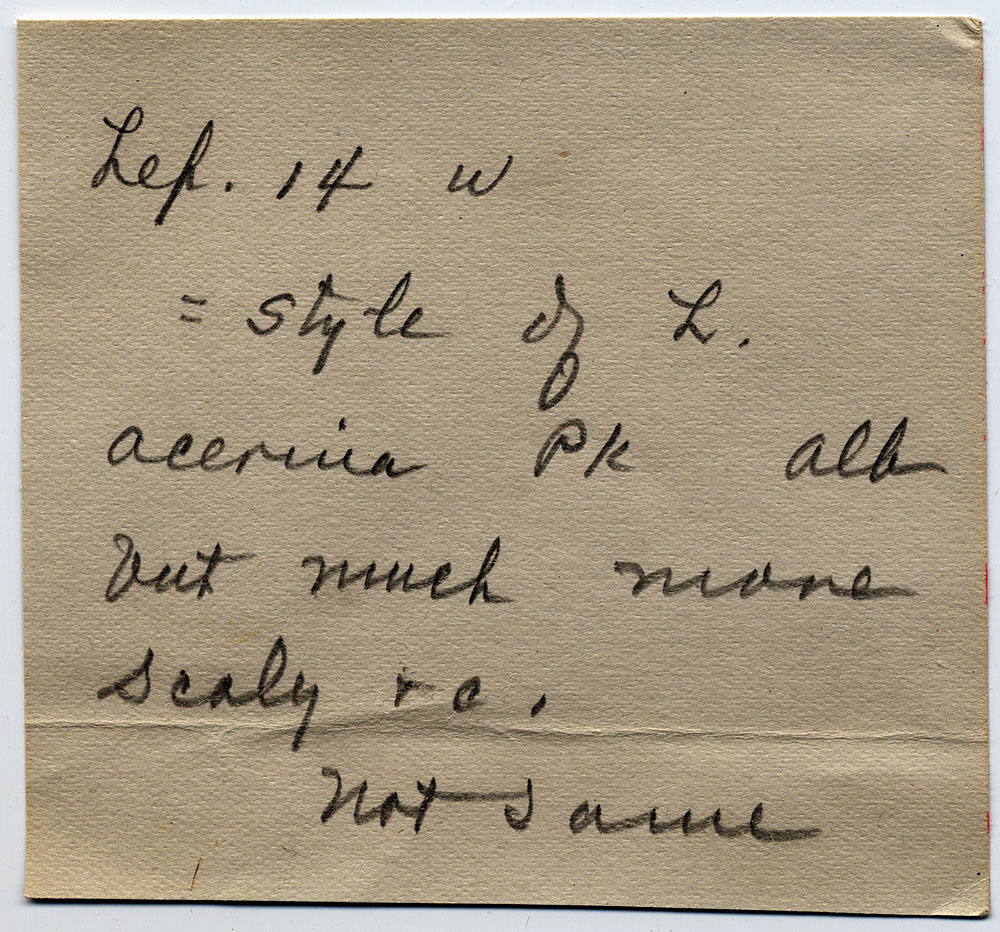 Lep. 14 w
= style of L.
acerina Pk alb
but much more
scaly & c.
Not same